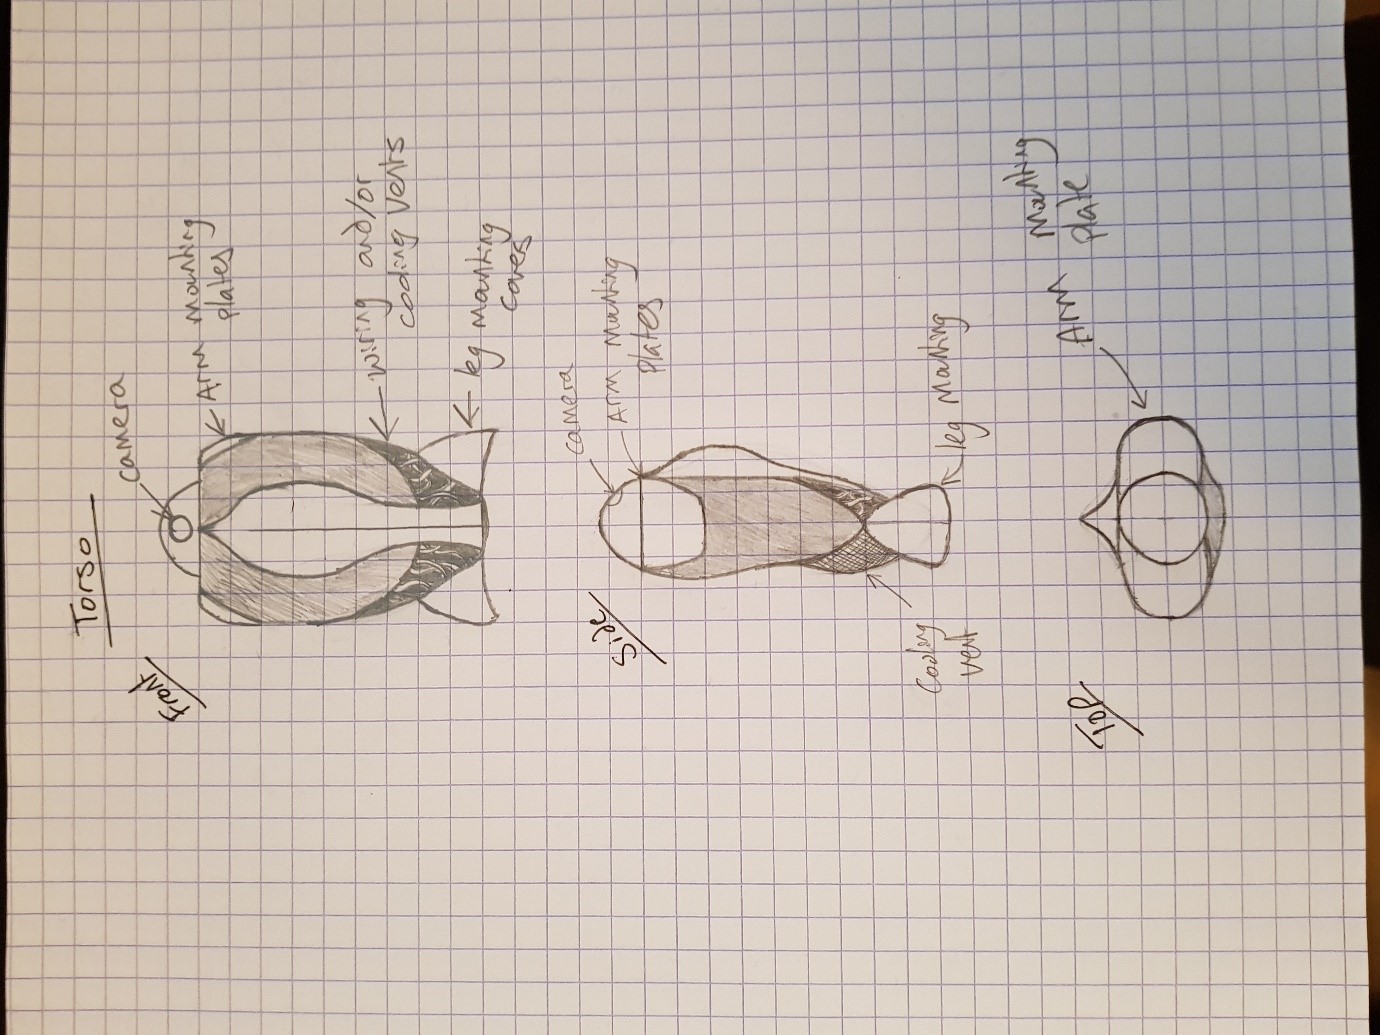 Torso
Front
camera
Arm mounting
plates
wiring and/or
cooling vents
leg mounting
cover
Side
camera
Arm mounting
plates
leg mounting
Cooling
vent
Top
Arm mounting
plate